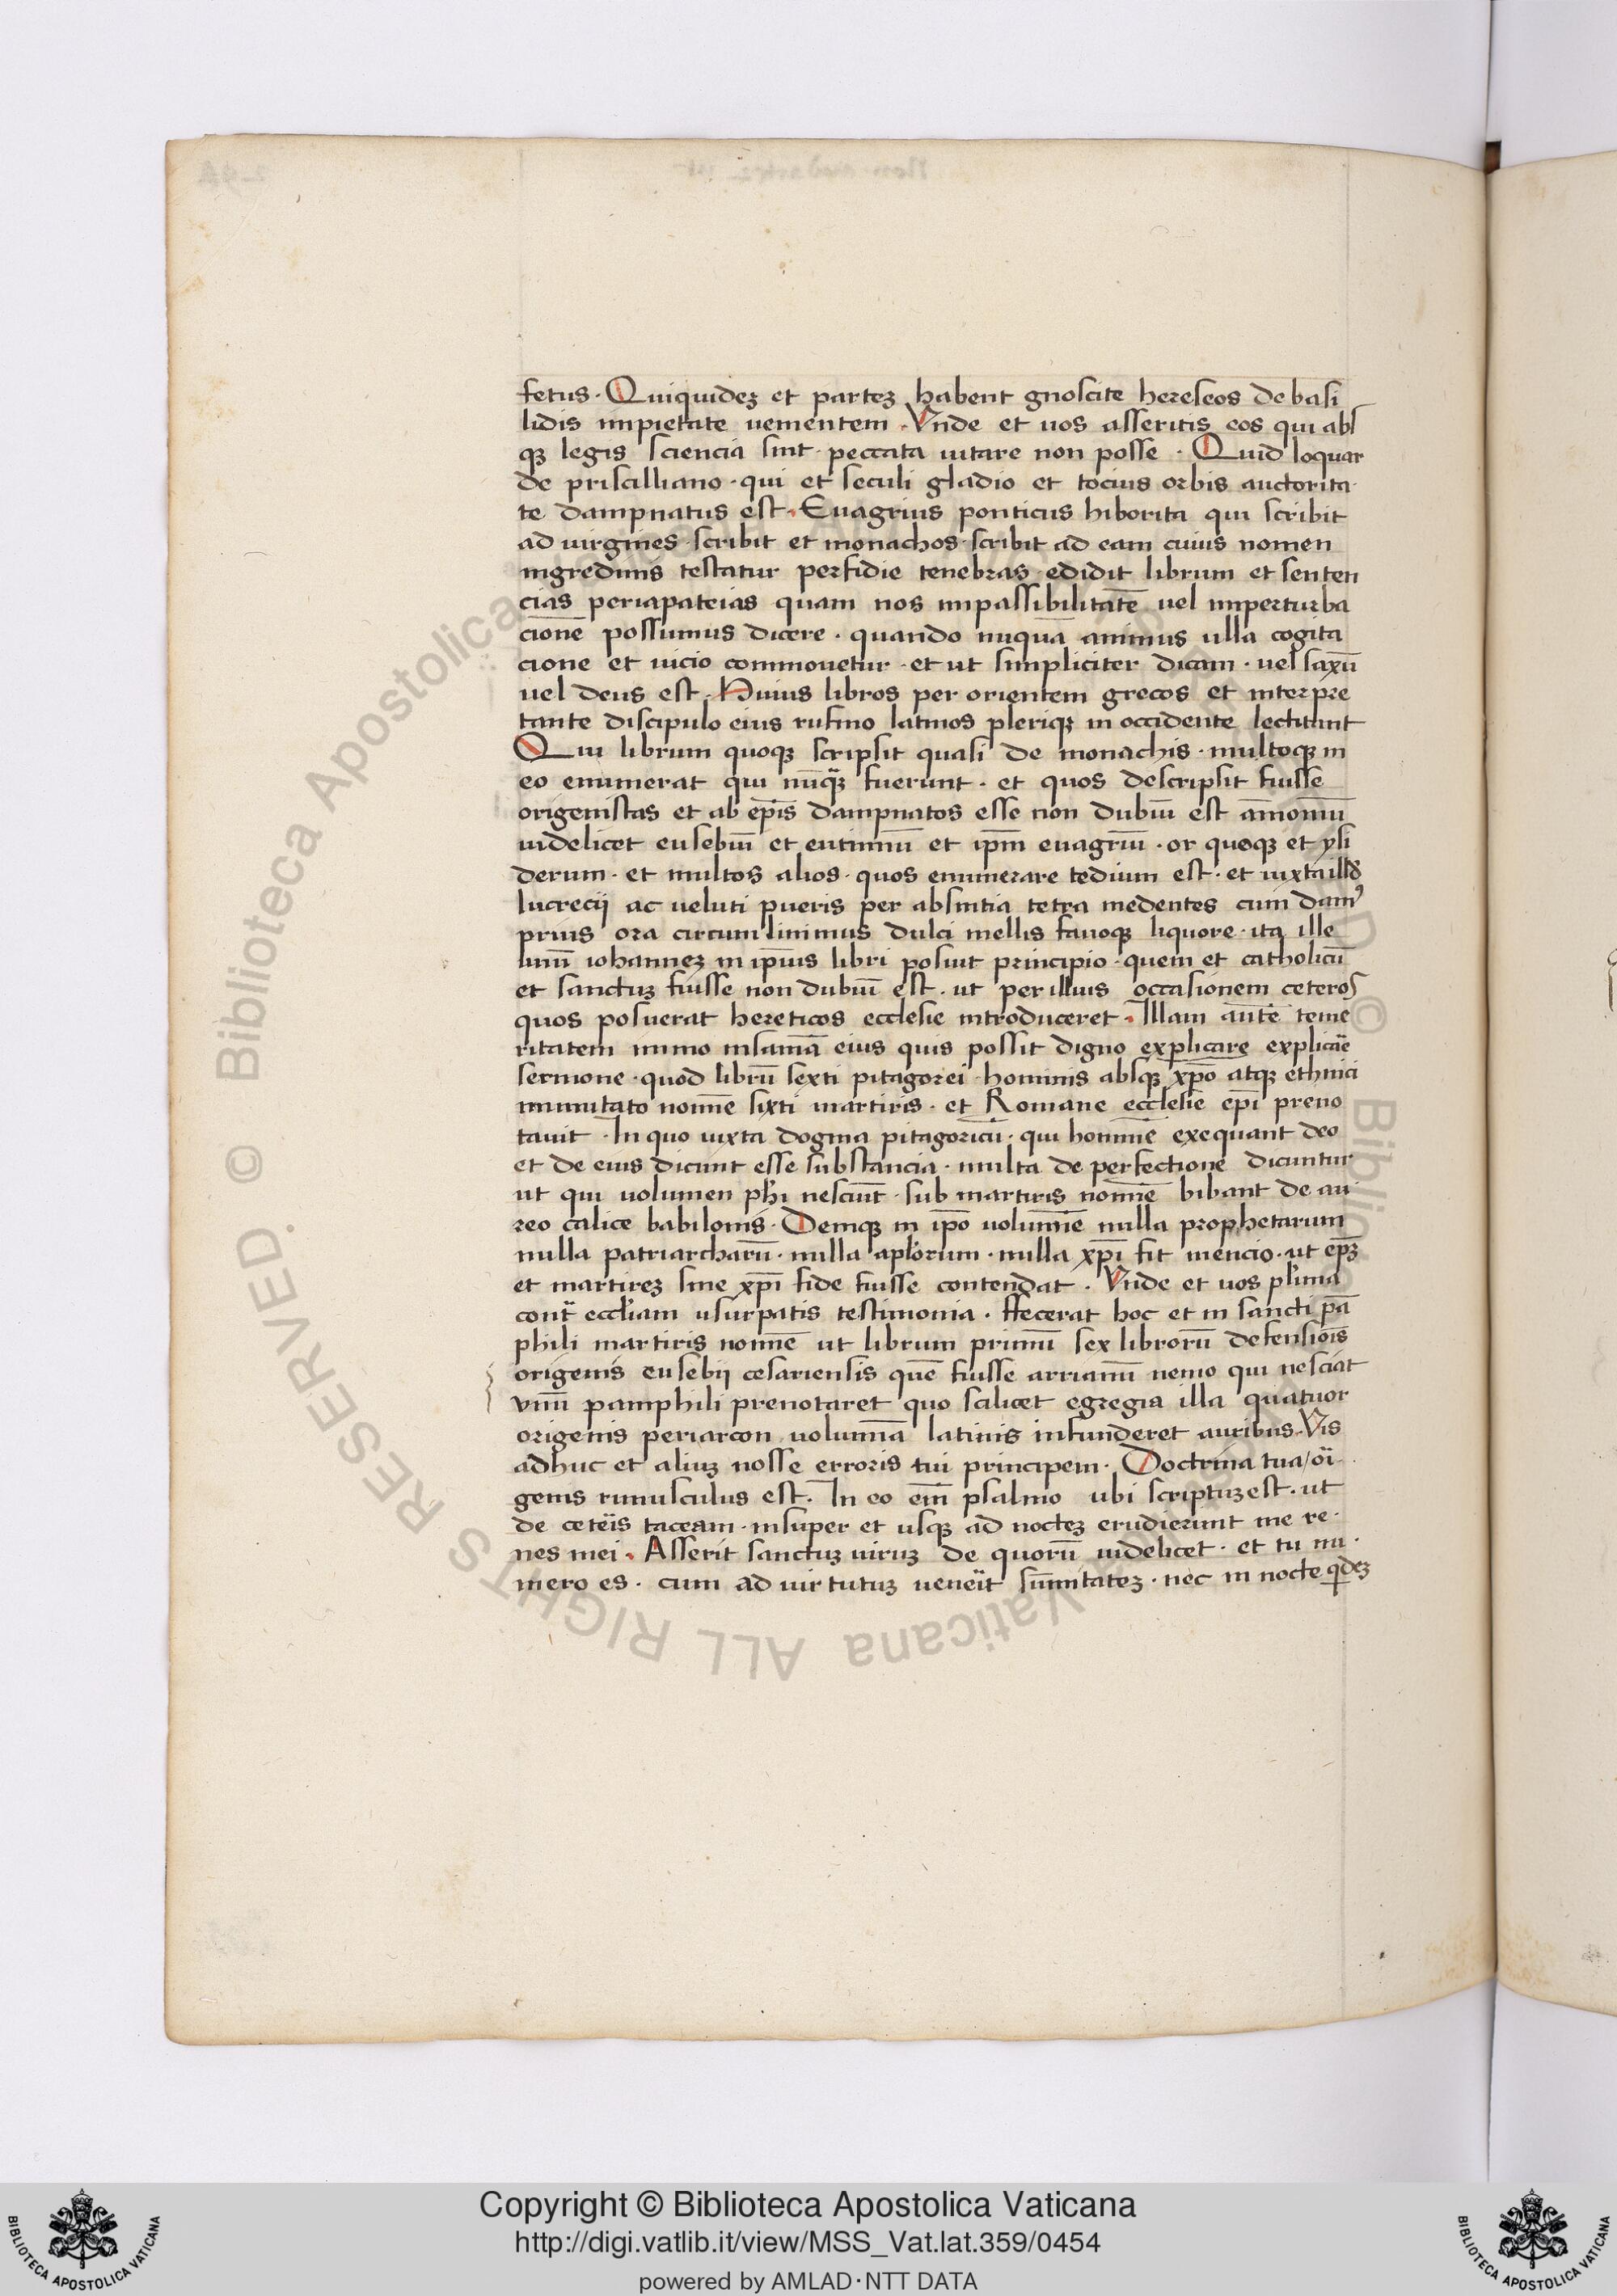 fetus · Quiquidez et partez habent gnoscite hereseos de basi
lidis impietate uementem · Vnde et uos asseritis eos qui abs
qz legis sciencia sint · peccata uitare non posse · Quid loquar
de priscilliano · qui et seculi gladio et tocius orbis auctorita·
te dampnatus est · Euagrius ponticus hiborita qui scribit
ad uirgines · scribit et monachos · scribit ad eam cuius nomen
nigredinis testatur perfidie tenebras · edidit librum et senten
cias periapateias · quam nos impassibilitatē uel imperturba
cionē possumus dicere · quando nuquā animus ulla cogita
cione et uicio commouetur · et ut simpliciter dicam · uel saxū
uel deus est · Huius libros per orientem grecos et interpre
tante discipulo eius rufino latinos pleriqz in occidente lectitant
Qui librum quoqz scripsit quasi de monachis · multoqz in
eo enumerat qui nūqz fuerunt · et quos descripsit fuisse
origenistas et ab ep̄is dampnatos esse non dubiū est am̄oniū
uidelicet eusebiū et eutimiū et ip̄m euagriū · or quoqz et ysi
derum · et multos alios · quos enumerare tedium est · et iuxta illd̄
lucrecij ac ueluti pueris per absintia tetra medentes cum dam⁹
prius ora circum linimus dulci mellis fauoqz liquore · ita ille
unū iohannez in ip̄ius libri posuit principio · quem et catholicū
et sanctuz fuisse non dubiū est · ut per illius occasionem ceteros
quos posuerat hereticos ecclesie introduceret · Illam autē teme
ritatem immo insaniā eius quis possit digno explicare explicar̄e
sermone · quod librū sexti pitagorei · hominis absqz xp̄o atqz ethnici
immutato nomīe sixti martiris · et Romane ecclesie ep̄i preno
tauit · In quo iuxta dogma pitagoricū · qui homīnē exequant deo
et de eius dicunt esse substancia · multa de perfectione dicuntur
ut qui uolumen ph̄i nesciūt · sub martiris nomīe bibant de au
reo calice babilonis · Deniqz in ip̄o uolumīe nulla prophetarum
nulla patriarcharū · nulla apl̄orum · nulla xp̄i fit mencio · ut ep̄z
et martirez sine xp̄i fide fuisse contendat · Vnde et uos pl̄ima
cont̄ eccl̄iam usurpatis testimonia · ffecerat hoc et in sancti pā
phili martiris nomīe ut librum primū sex librorū defensiōis
origenis eusebij cesariensis quē fuisse arrianū nemo qui nesciat
vnū pamphili prenotaret quo scilicet egregia illa quatuor
origenis periarcon uolumīa latinis infunderet auribus · Vis
adhuc et aliuz nosse erroris tui principem · Doctrina tua / or̄i·
genis rimusculus est · In eo em̄ psalmo ubi scriptuz est · ut
de ceter̄is taceam · insuper et usqz ad noctez erudierunt me re·
nes mei · Asserit sanctuz uiruz de quorū uidelicet · et tu nu·
mero es · cum ad uirtutuz uener̄it sūmitatez · nec in nocte q̄dez
Copyright © Biblioteca Apostolica Vaticana
http://digi.vatlib.it/view/MSS_Vat.lat.359/0454
powered by AMLAD·NTT DATA
BIBLIOTECA APOSTOLICA VATICANA
BIBLIOTECA APOSTOLICA VATICANA
© Biblioteca Apostolica Vaticana ALL RIGHTS RESERVED.